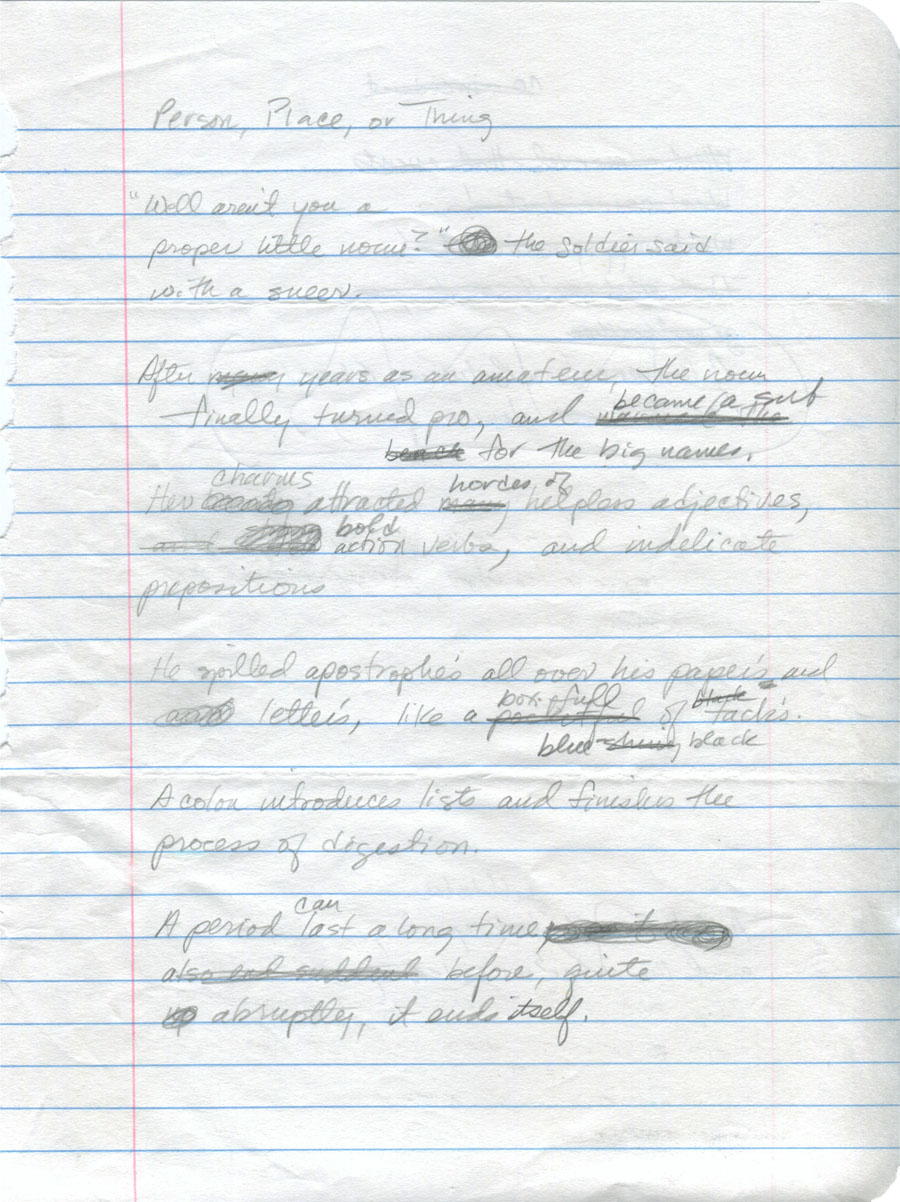 Person, Place, or Thing
"Well aren't you a
proper little noun?" the soldier said
with a sneer.
After many years as an amateur, the noun
became a sub
finally turned pro, and
bench for the big names.
charms hordes of
Her beauty attracted many helpless adjectives,
bold
and action verbs, and indelicate
prepositions
He spilled apostrophe's all over his paper's and
boxfull black
and letter's, like a pocketful of tack's.
blue shiny black
A colon introduces lists and finishes the
process of digestion.
can
A period last a long time
also end suddenl before, quite
abruptly, it ends itself.